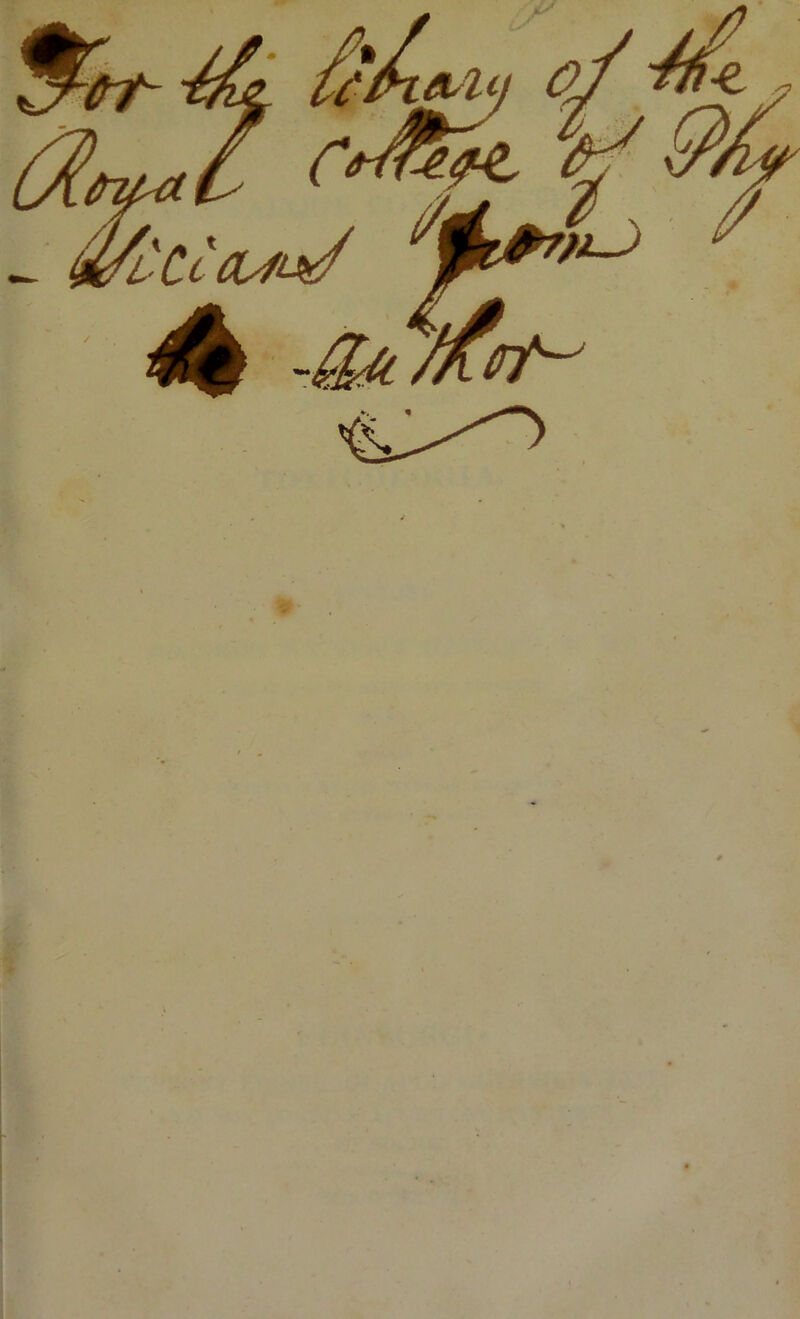 For the library of the
Royal College of Phy
- sicians from
the Author